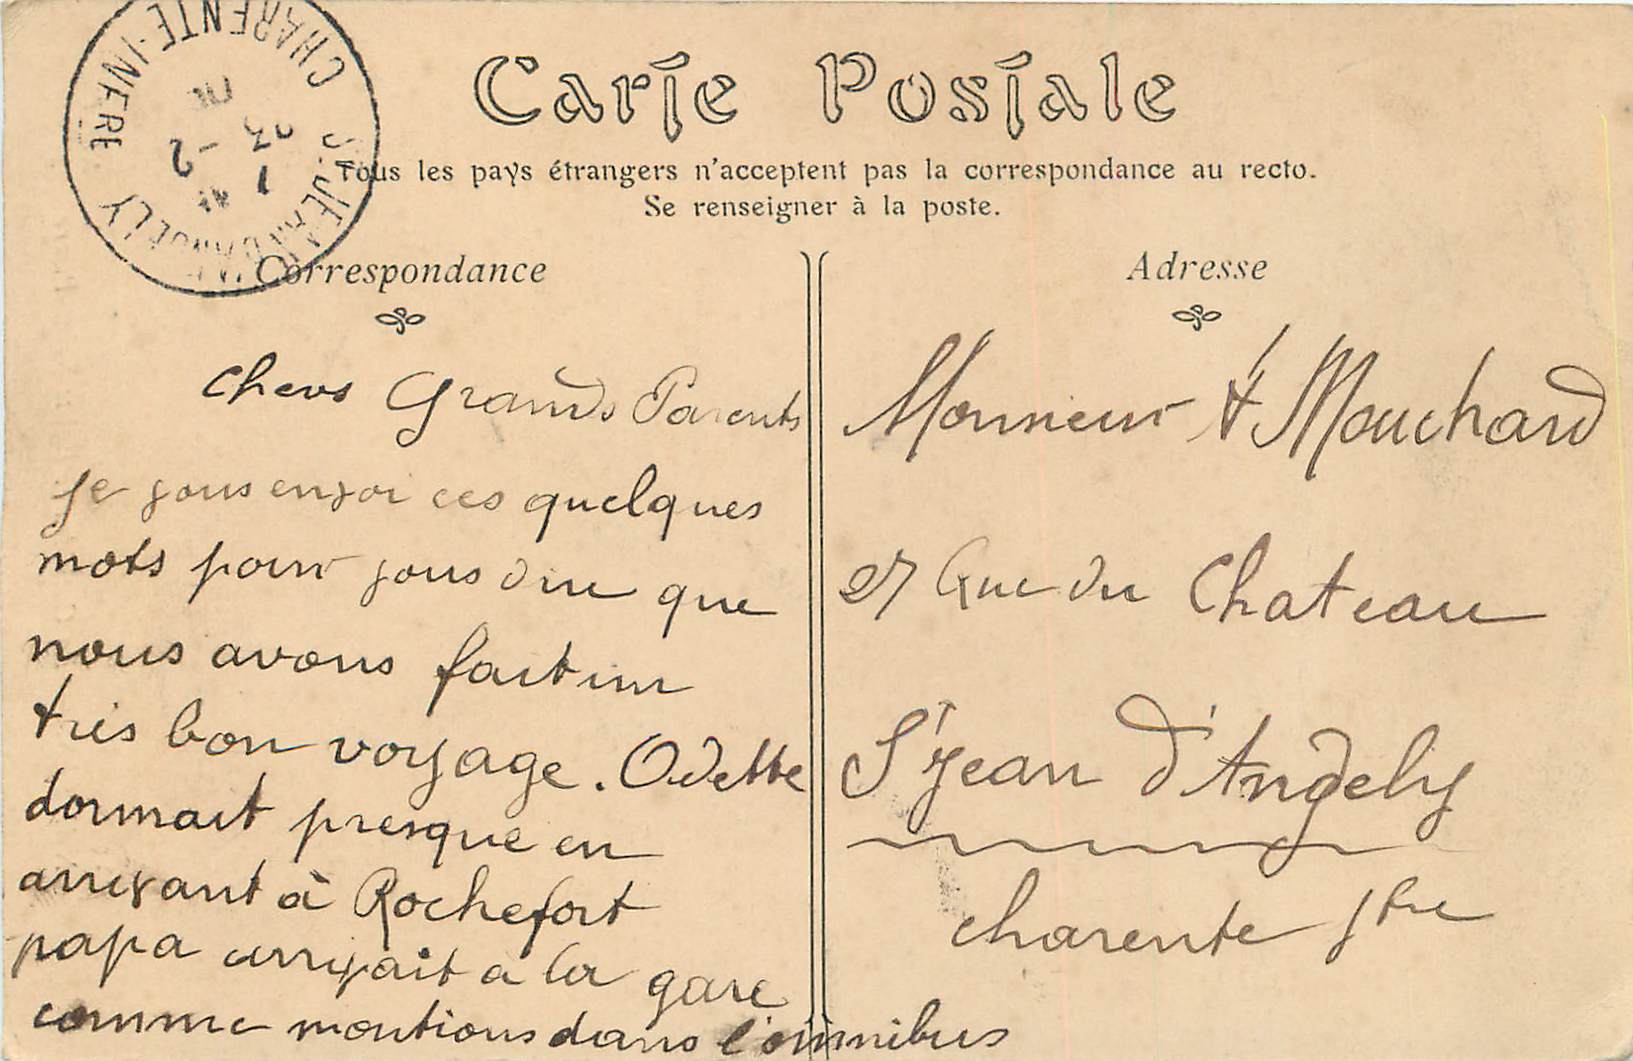 Carte Postale
Tous les pays étrangers n'acceptent pas la correspondance au recto.
Se renseigner à la poste.
Correspondance
chers Grands Parents
je vous envoi ces quelques
mots pour vous dire que
nous avons fait un
très bon voyage. Odette
dormait presque en
arrivant à Rochefort
papa arrivait a la gare
comme montions dans l'omnibus
Adresse
Monsieur A Mouchard
27 Rue du Chateau
St Jean d'Angely
charente Ifre
ST JEAN D'ANGELY
CHARENTE-INFRE
23 -2